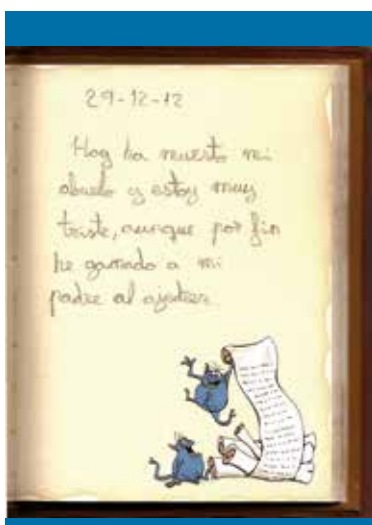 29-12-12
Hoy ha muerto mi
abuelo y estoy muy
triste, aunque por fin
he ganado a mi
padre al ajedrez.